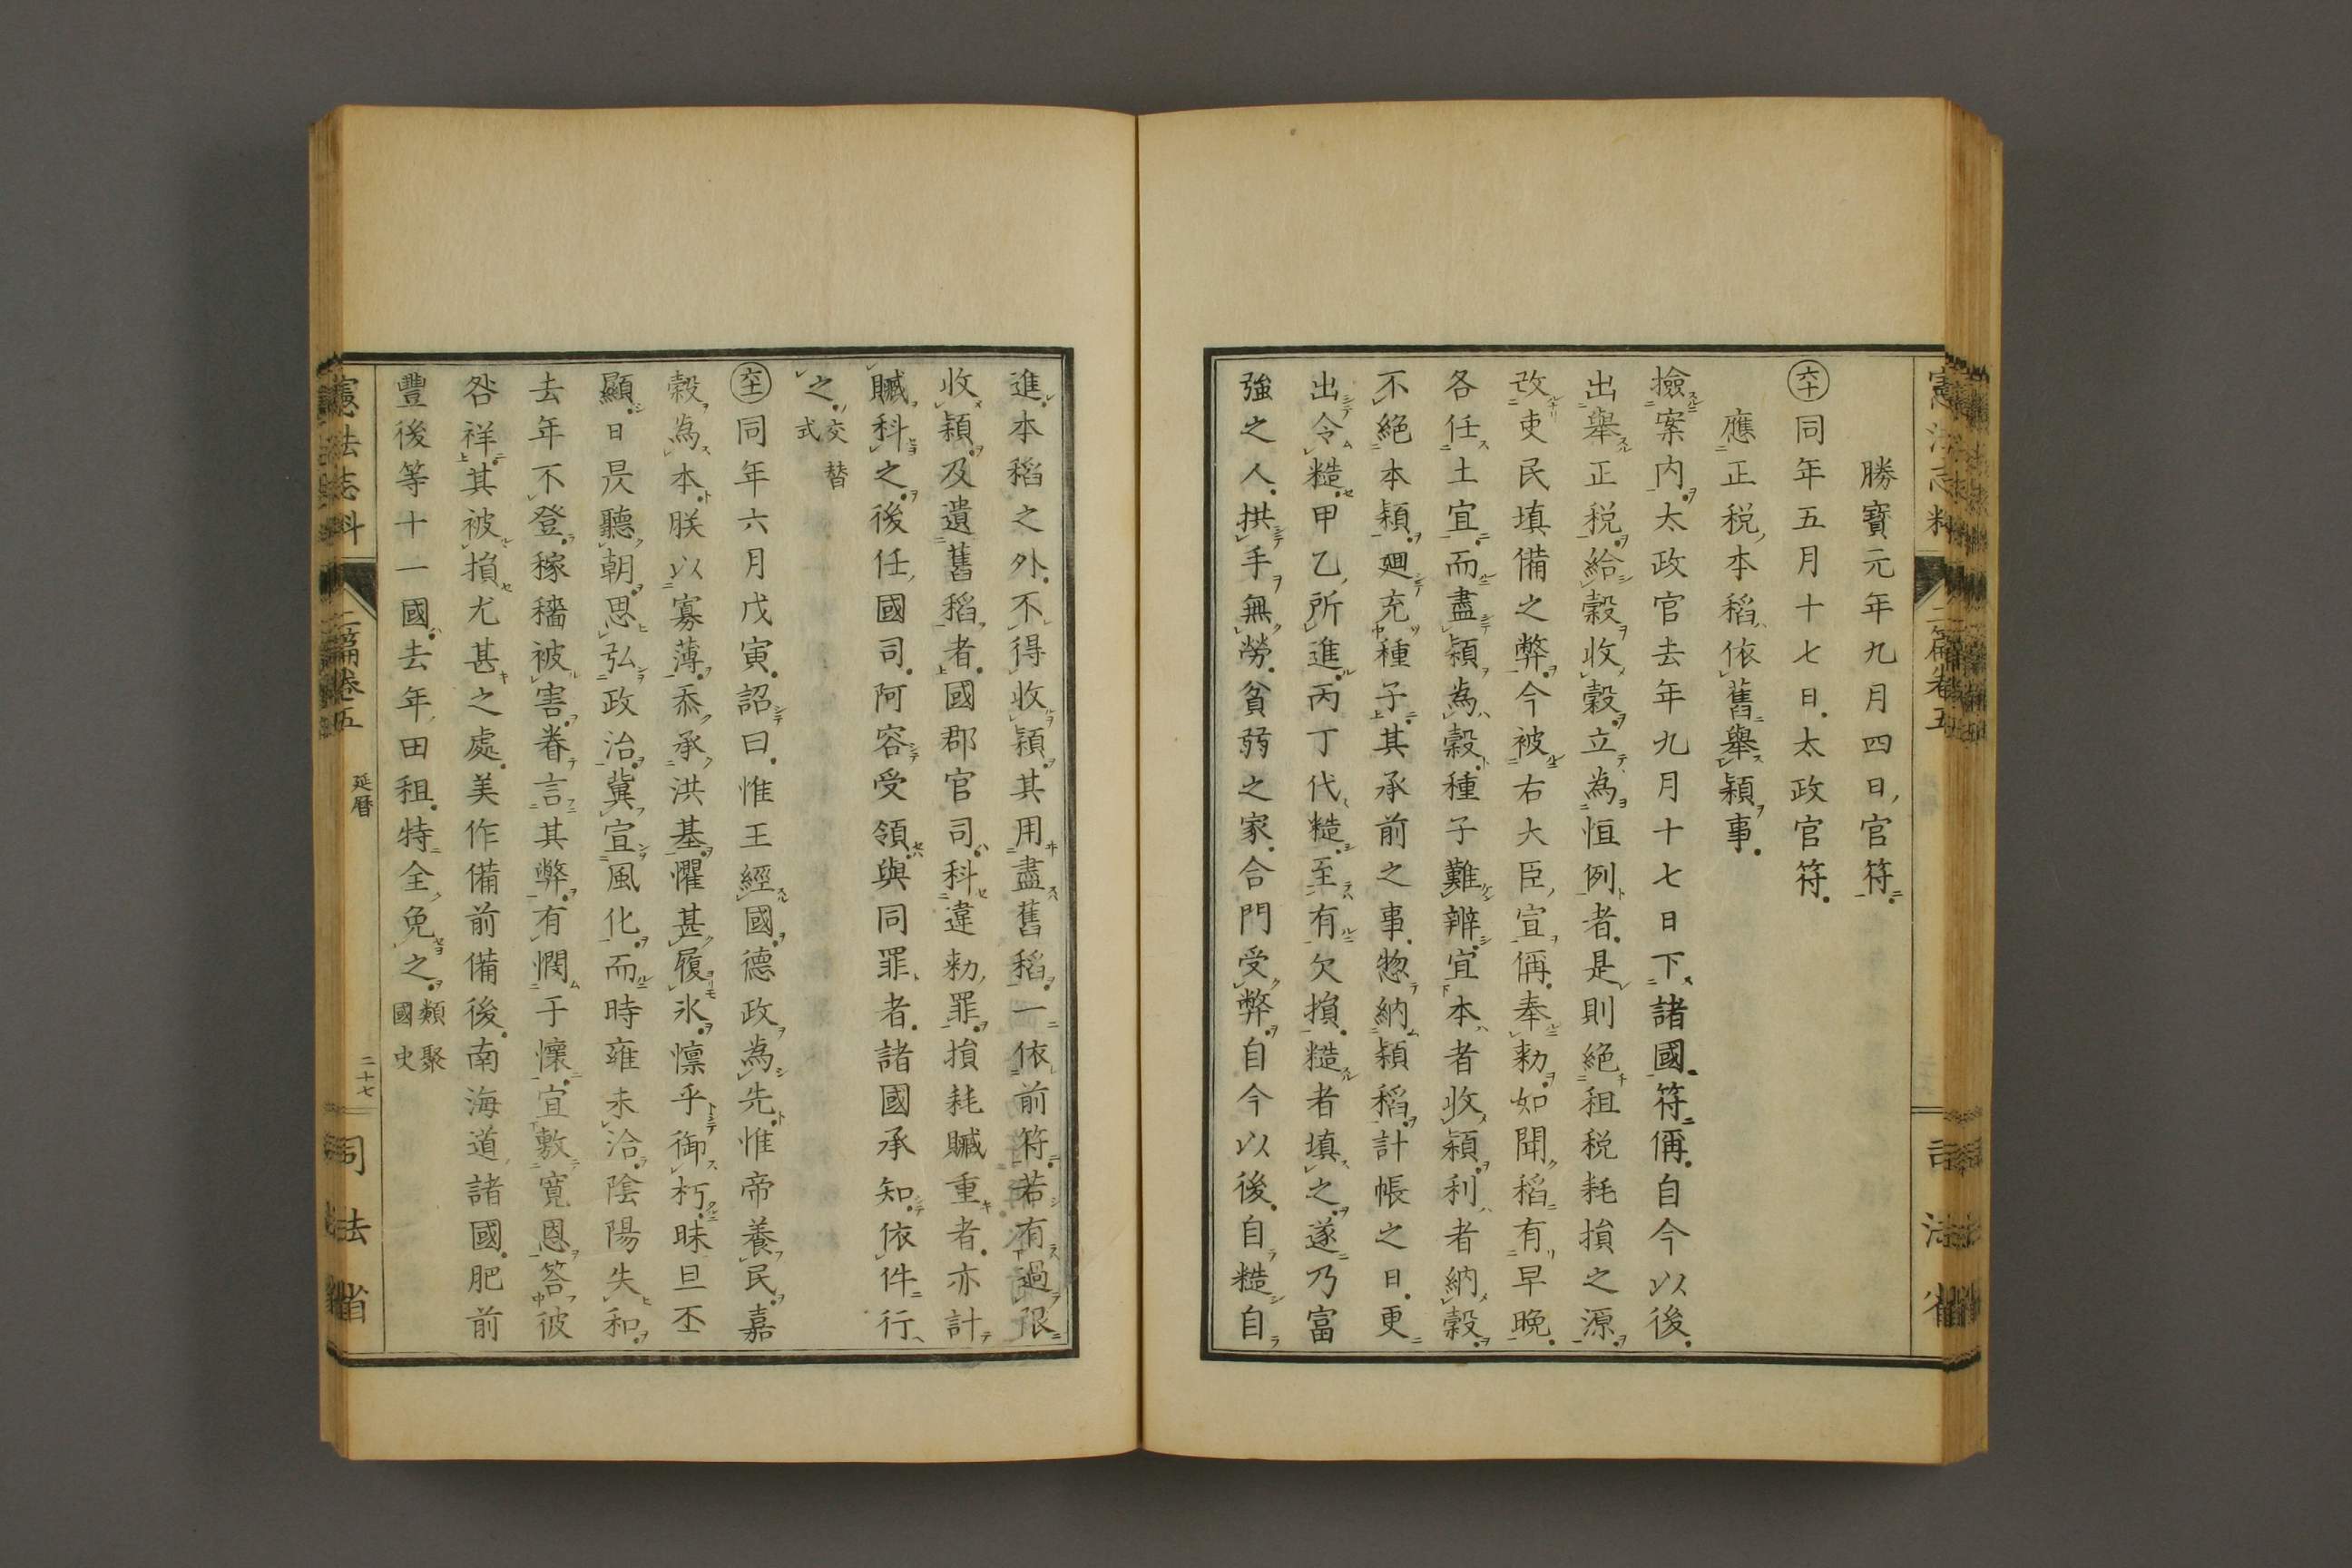 勝寶元年九月四日官符
六十同年五月十七日太政官符
應正税本稻依舊舉穎事
撿案内太政官去年九月十七日下諸國符偁自今以後
出舉正税給穀收穀立為恒例者是則絶租税耗損之源
改吏民填備之弊今被右大臣宣偁奉勅如聞稻有早晚
各任土宜而盡穎為穀種子難辨宜本者收穎利者納穀
不絶本穎廻充種子其承前之事惣納穎稻計帳之日更
出令糙甲乙所進丙丁代糙至有欠損糙者填之遂乃富
強之人拱手無勞貧弱之家合門受弊自今以後自糙自
進本稻之外不得收穎其用盡舊稻一依前符若有過限
收穎及遺舊稻者國郡官司科違勅罪損耗贓重者亦計
贓科之後任國司阿容受領與同罪者諸國承知依件行
之交替式
六十一同年六月戊寅詔曰惟王經國德政為先惟帝養民嘉
穀為本朕以寡薄忝承洪基懼甚履氷懍乎御朽昧旦丕
顯日昃聽朝思弘政治冀宣風化而時雍未洽陰陽失和
去年不登稼穡被害眷言其弊有憫于懷宜敷寛恩答彼
咎祥其被損尤甚之處美作備前備後南海道諸國肥前
豐後等十一國去年田租特全免之類聚國史
憲法志料
二篇卷五
延曆
二十七
司法省